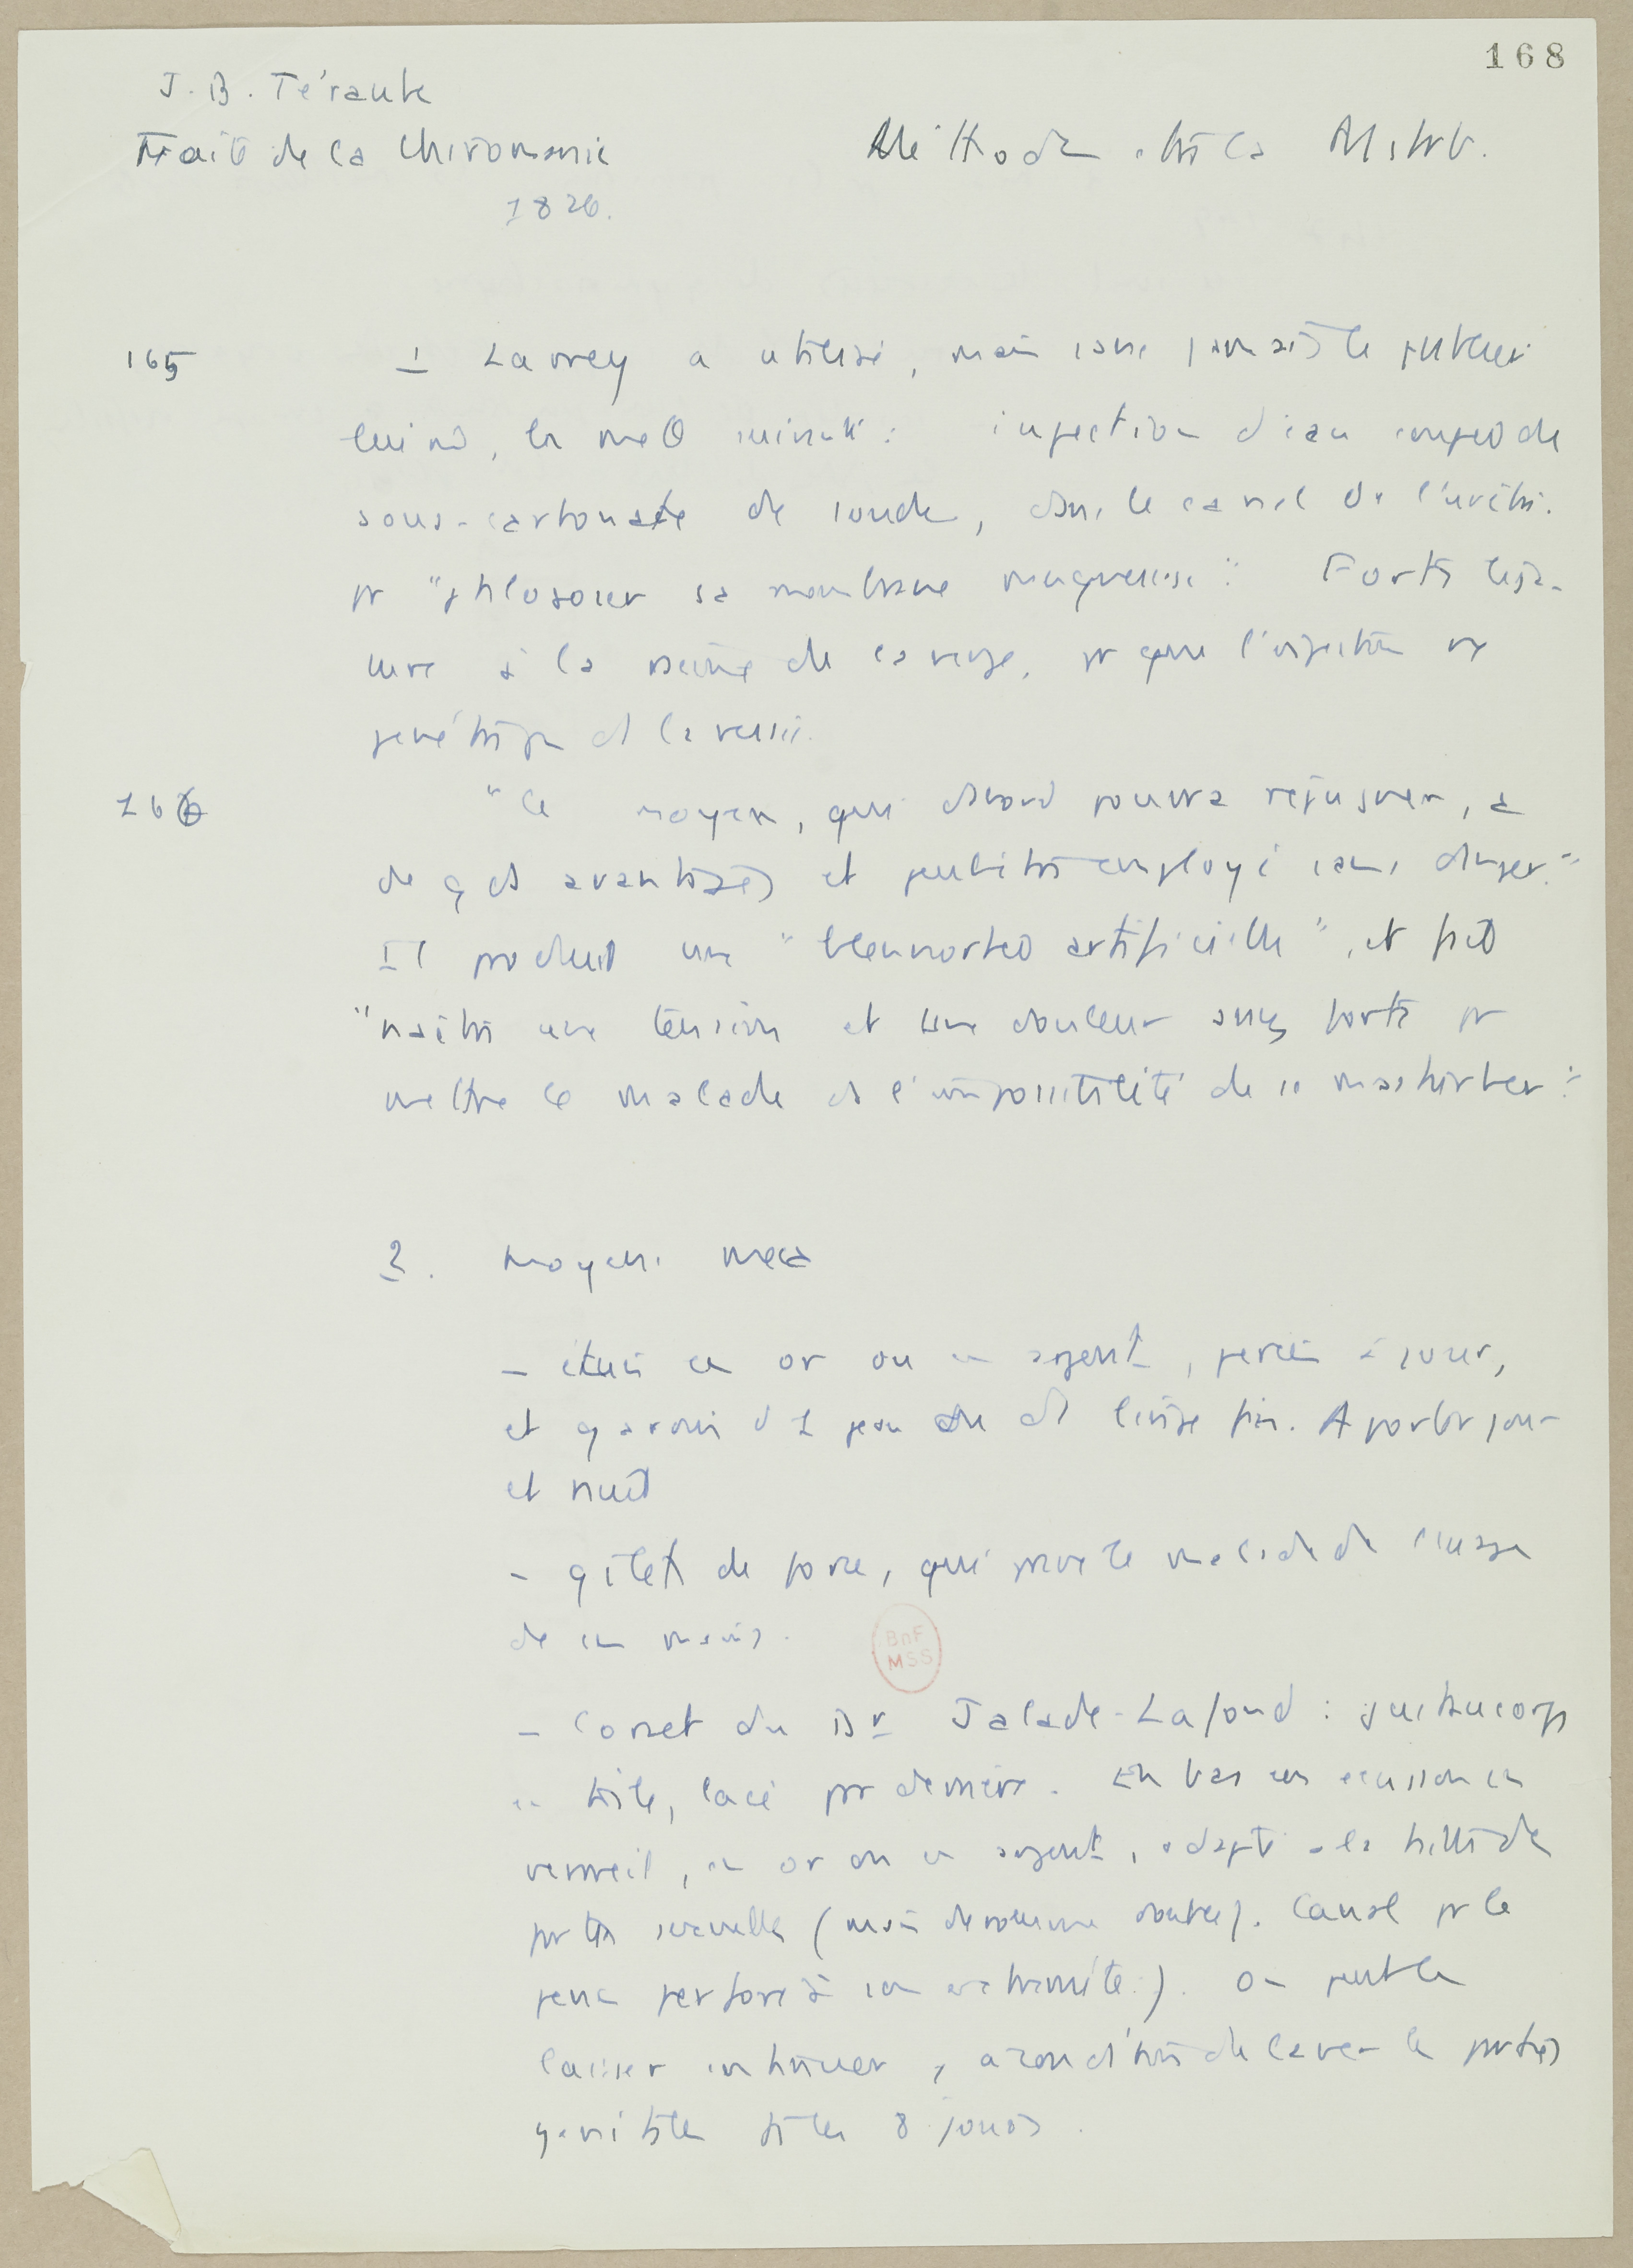 168
J. B. Téraube
Traité de la Chiromanie
1826.
Méthode contre la Mastb.
165
1 Larrey a utilisé, mais sans jamais le publier
lui m̂, la méθ suivante : injection d'eau de
sous-carbonate de soude, dans le canal de l'urètre.
pr "phlogoser sa membrane muqueuse". Forte liga-
ture à la racine de la verge, pr que l'injection ne
pénètre pas ds la vessie.
166
"Ce moyen, qui d'abord pourra répugner, a
de gds avantages et peut être employé sans danger."
Il produit une "blennorrhée artificielle", et fait
"naître une tension et une douleur assez fortes pr
mettre le malade ds l'impossibilité de se masturber".
2. Moyens méca
- étuis en or ou en argent, percés à jour,
et garnis d'1 peau ou de linge fin. A porter jour
et nuit
- gilets de force, qui prive le malade de l'usage
de ses mains.
- Corset du Dr Jalade-Lafond : justaucorps
en toile, lacé par derrière. En bas un écusson en
vermeil, en or ou en argent, adapté à la taille des
parties sexuelles (mais de volume double). Canal pr le
pénis perforé à son extrémité.). On peut le
laisser in trouver, à condition de laver les parties
génitales ts les 8 jours.
BnF
MSS